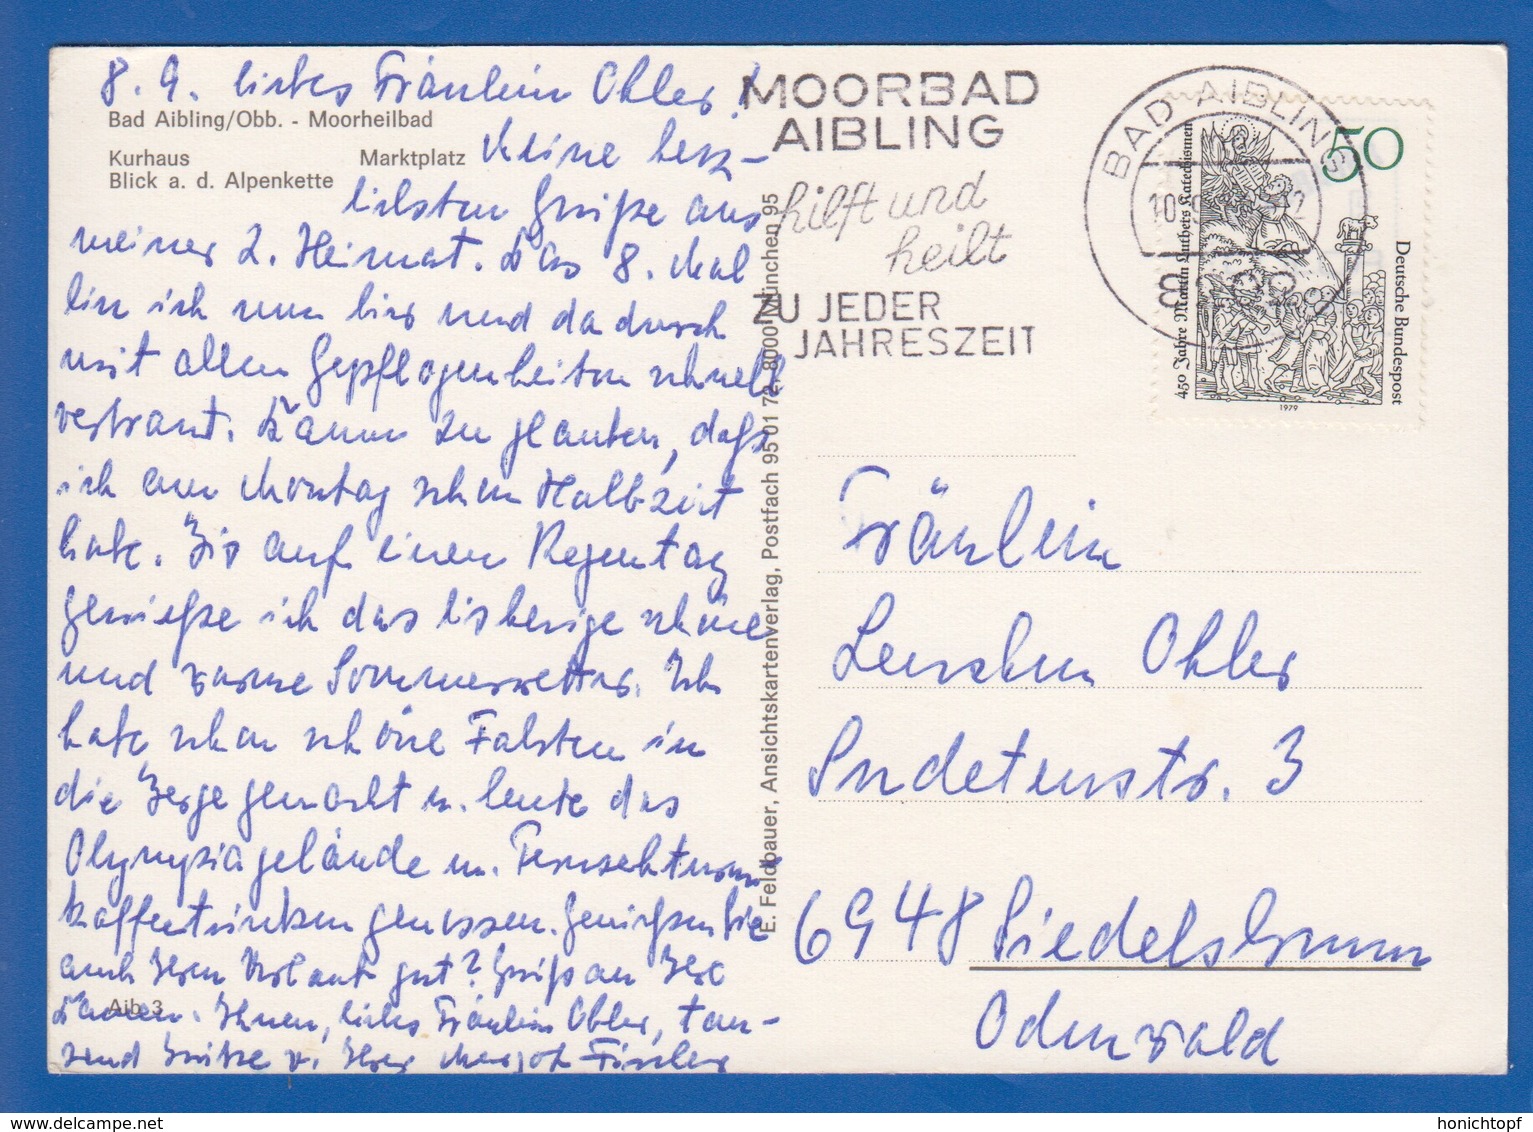 8. 9. liebes Fräulein Ohler!
Bad Aibling/Obb. - Moorheilbad
Kurhaus Marktplatz
Blick a. d. Alpenkette
Meine herz-
lichsten Grüße aus
meiner 2. Heimat. Das 8. Mal
bin ich nun hier und dadurch
mit allen Gepflogenheiten schnell
vertraut. Kaum zu glauben, daß
ich am Montag schon Halbzeit
habe. Bis auf einen Regentag
genieße ich das bisherige schöne
und warme Sommerwetter. Ich
habe schon schöne Fahrten in
die Berge gemacht u. heute das
Olympiagelände u. Fernsehturm
Kaffeetrinken genossen. Genießen Sie
auch Ihren Urlaub gut? Gruß an Ihre
Damen. Ihnen, liebes Fräulein Ohler, tau-
send Grüße v. Ihrer Fischer
Aib 3
E. Feldbauer, Ansichtskartenverlag, Postfach 95 01 72, 8000 München 95
MOORBAD
AIBLING
hilft und
heilt
ZU JEDER
JAHRESZEIT
BAD AIBLING
50
450 Jahre Martin Luthers Katechismen
Deutsche Bundespost
1979
Fräulein
Lenchen Ohler
Sudetenstr. 3
6948 Siedelsbrunn
Odenwald
www.delcampe.net
honichtopf